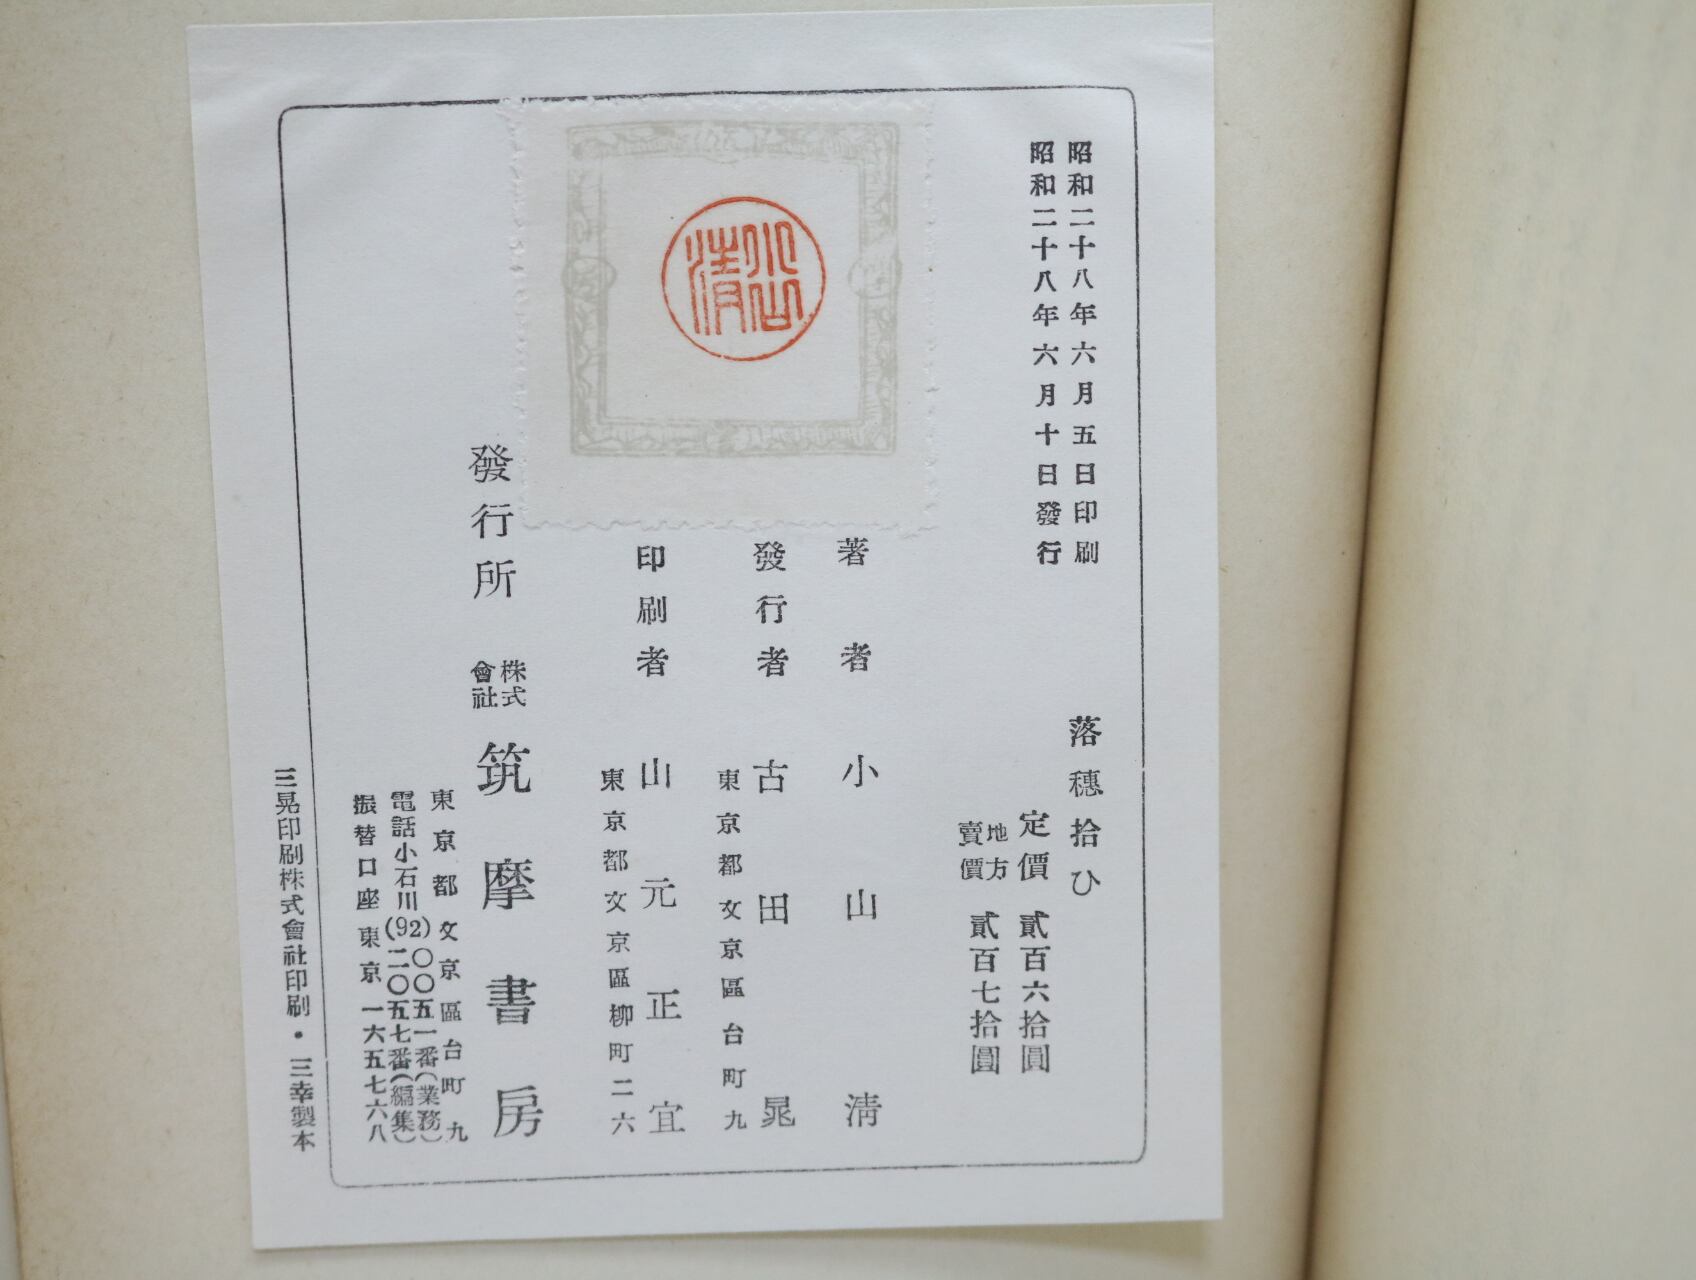 昭和二十八年六月五日印刷
昭和二十八年六月十日發行
落穗拾ひ
定價 貳百六拾圓
地方賣價 貳百七拾圓
著者 小山清
發行者 古田晁
東京都文京區台町九
印刷者 山元正宜
東京都文京區柳町二六
發行所 株式會社 筑摩書房
東京都文京區台町九
電話小石川(92)〇〇五一番(業務)
二〇五七番(編集)
振替口座東京一六五七六八
三晃印刷株式會社印刷・三幸製本
小山清